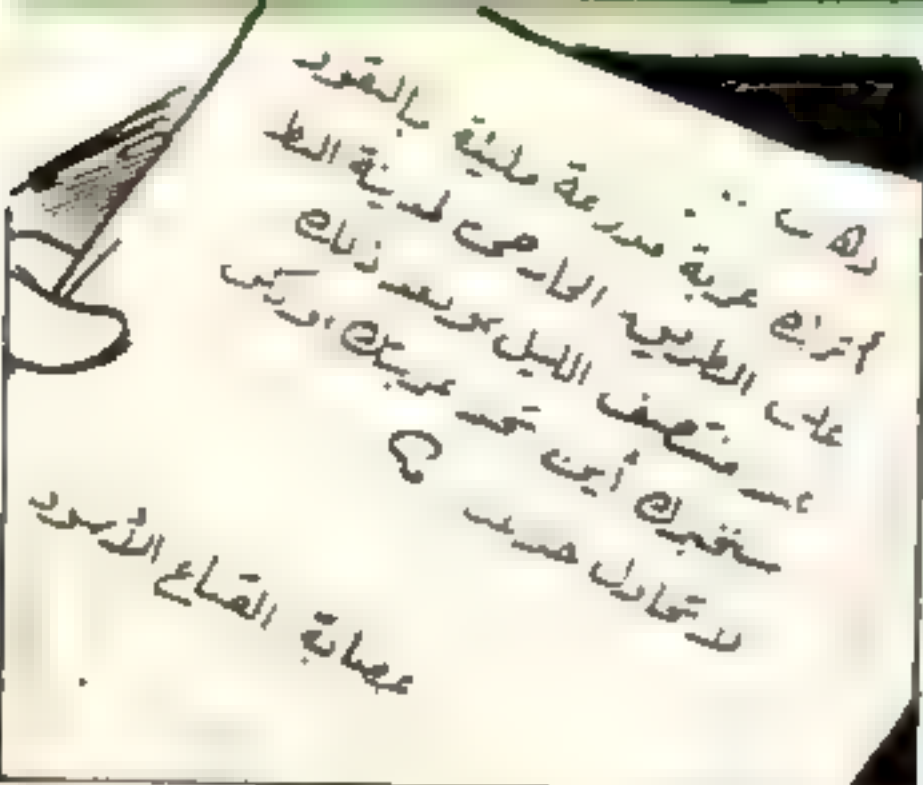 دهب ..
اترك عربة مدرعة مليئة بالنقود
على الطريق الخارجى لمدينة البط
عند منتصف الليل وبعد ذلك
سنخبرك أين تجد عربتك
لا تحاول
عصابة القناع الأسود